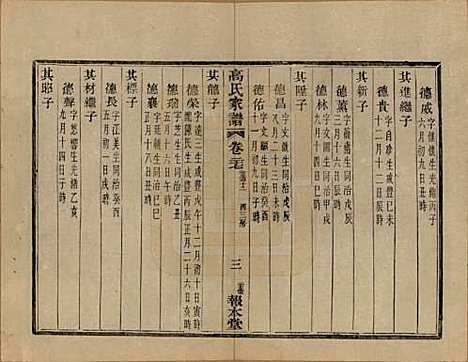 德威 字權懷生光緒丙子
六月初九日戌時
其進繼子
德貴 字自珍生咸豐己未
十二月十二日辰時
其新子
德薰 字生同治戊辰
五月二十三日寅時
德林 字文生同治甲戌
六月初二日戌時
其陞子
德昌 字文生同治戊辰
十二月二十三日未時
德佑 字文生同治癸酉
九月初九日子時
高氏家譜 卷二十七 三 報本堂
其龍子
德榮 字遠三生咸豐戊午十二月初十日寅時
陳氏生咸豐丙辰正月二十六日亥時
德瑞 字芝生生同治乙丑
五月十六日午時
德襄 字廷生同治己巳
正月十八日戌時
其標子
德長 字江美生同治癸酉
五月初一日戌時
其材繼子
德聲 字生光緒乙亥
九月十四日子時
其耶子